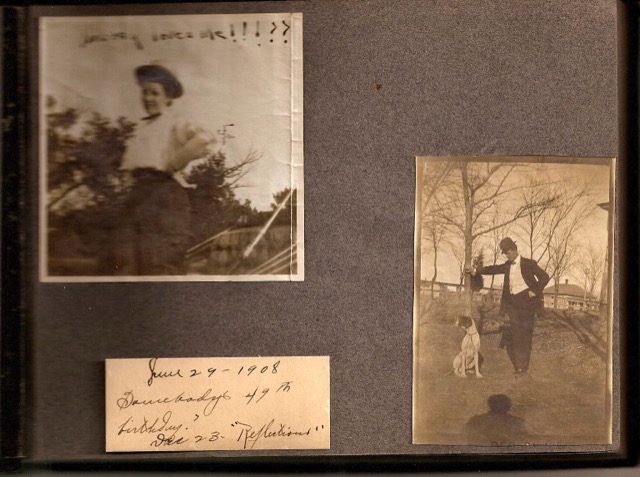 loves me!!!??
June 29 - 1908
Somebody's 49th
birthday?
Dec 23 - "Reflections"